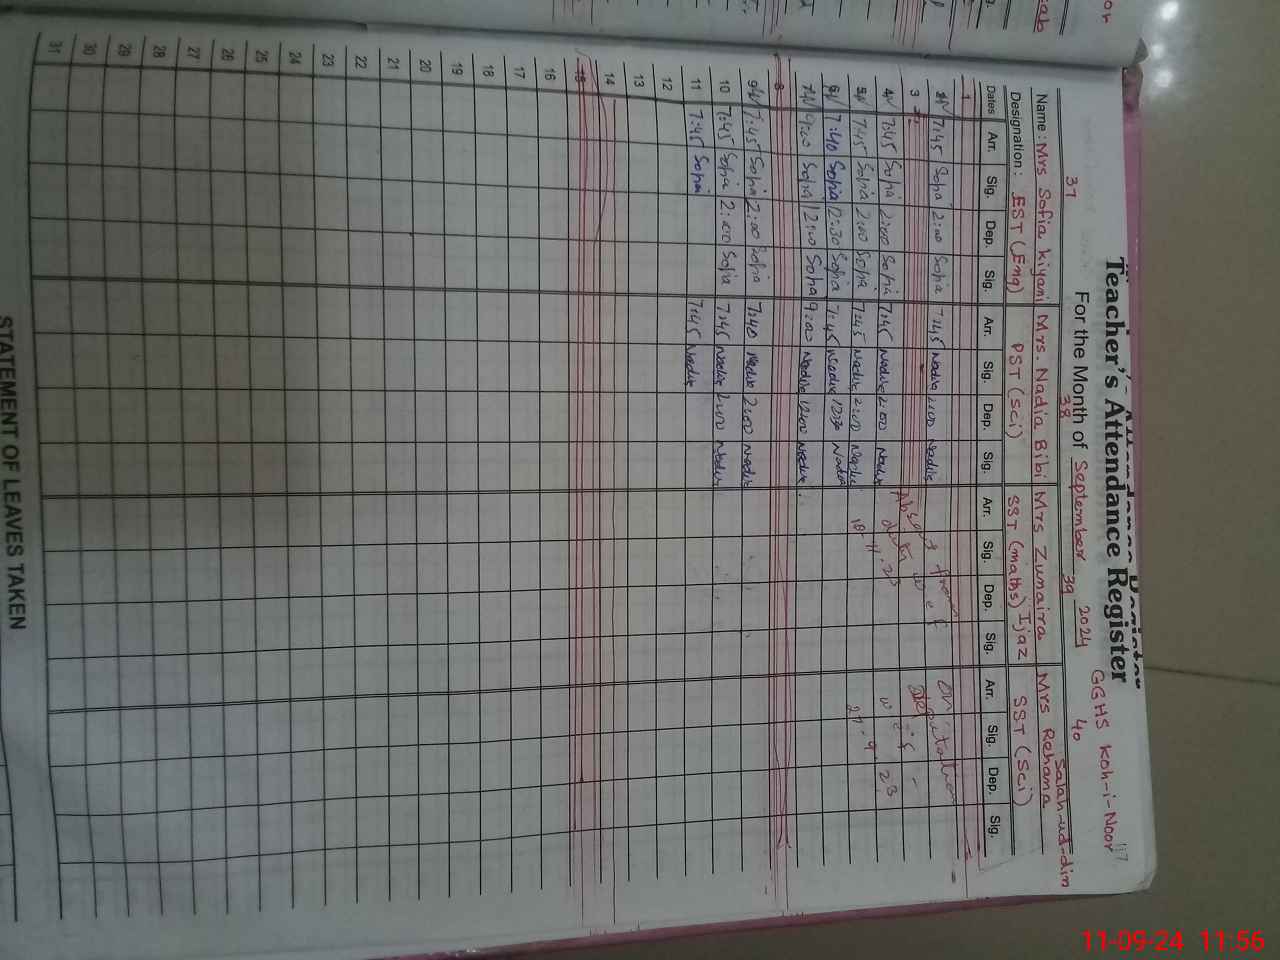 Teacher's Attendance Register
GGHS Koh-i-Noor
117
For the Month of September 2024
37 38 39 40
Name: Mrs Sofia Kiyani Mrs. Nadia Bibi Mrs Zunaira Ijaz Mrs Rehama Salah-ud-din
Designation: EST (Eng) PST (Sci) SST (maths) SST (Sci)
Dates Arr. Sig. Dep. Sig. Arr. Sig. Dep. Sig. Arr. Sig. Dep. Sig. Arr. Sig. Dep. Sig.
1
2 7:45 Sofia 2:00 Sofia 7:45 Nadia 2:00 Nadia
3
4 7:45 Sofia 2:00 Sofia 7:45 Nadia 2:00 Nadia
5 7:45 Sofia 2:00 Sofia 7:45 Nadia 2:00 Nadia
6 7:40 Sofia 12:30 Sofia 7:45 Nadia 12:30 Nadia
7 9:00 Sofia 12:00 Sofia 9:00 Nadia 12:00 Nadia
8
9 7:45 Sofia 2:00 Sofia 7:40 Nadia 2:00 Nadia
10 7:45 Sofia 2:00 Sofia 7:45 Nadia 2:00 Nadia
11 7:45 Sofia 7:45 Nadia
12
13
14
15
16
17
18
19
20
21
22
23
24
25
26
27
28
29
30
31
Absent from
w e f
On deputation
w e f
27.9.23
STATEMENT OF LEAVES TAKEN
11-09-24 11:56